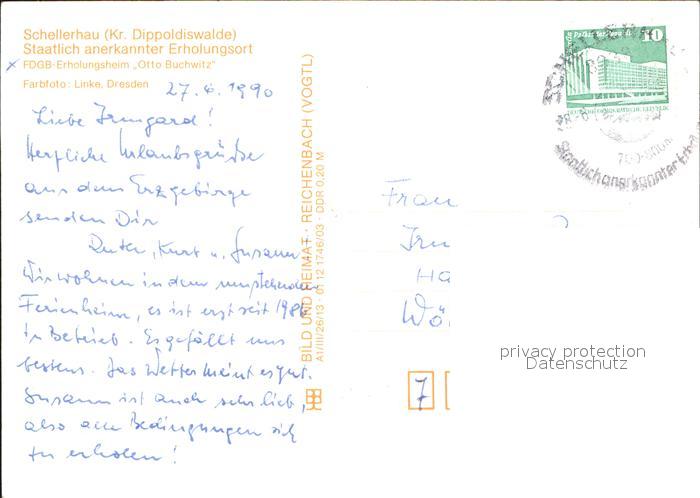 Schellerhau (Kr. Dippoldiswalde)
Staatlich anerkannter Erholungsort
x FDGB-Erholungsheim „Otto Buchwitz"
Farbfoto: Linke, Dresden
27.6.1990
Liebe Irmgard!
Herzliche Urlaubsgrüße
aus dem Erzgebirge
senden Dir
Kurt u. Susann
Wir wohnen in dem umstehenden
Ferienheim, es ist erst seit 1986
in Betrieb. Es gefällt uns
bestens. Das Wetter meint es gut.
Susann ist auch sehr lieb,
also alle Bedingungen sich
zu erholen!
BILD UND HEIMAT · REICHENBACH (VOGTL)
A1/III/26/13 01 12 1746/03 · DDR 0,20 M
10
Staatlich anerkannter
Frau
7
privacy protection
Datenschutz